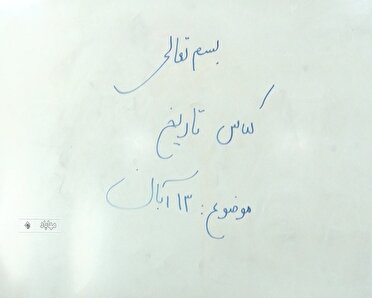 بسم تعالی
کلاس تاریخ
موضوع: ۱۳ آبان